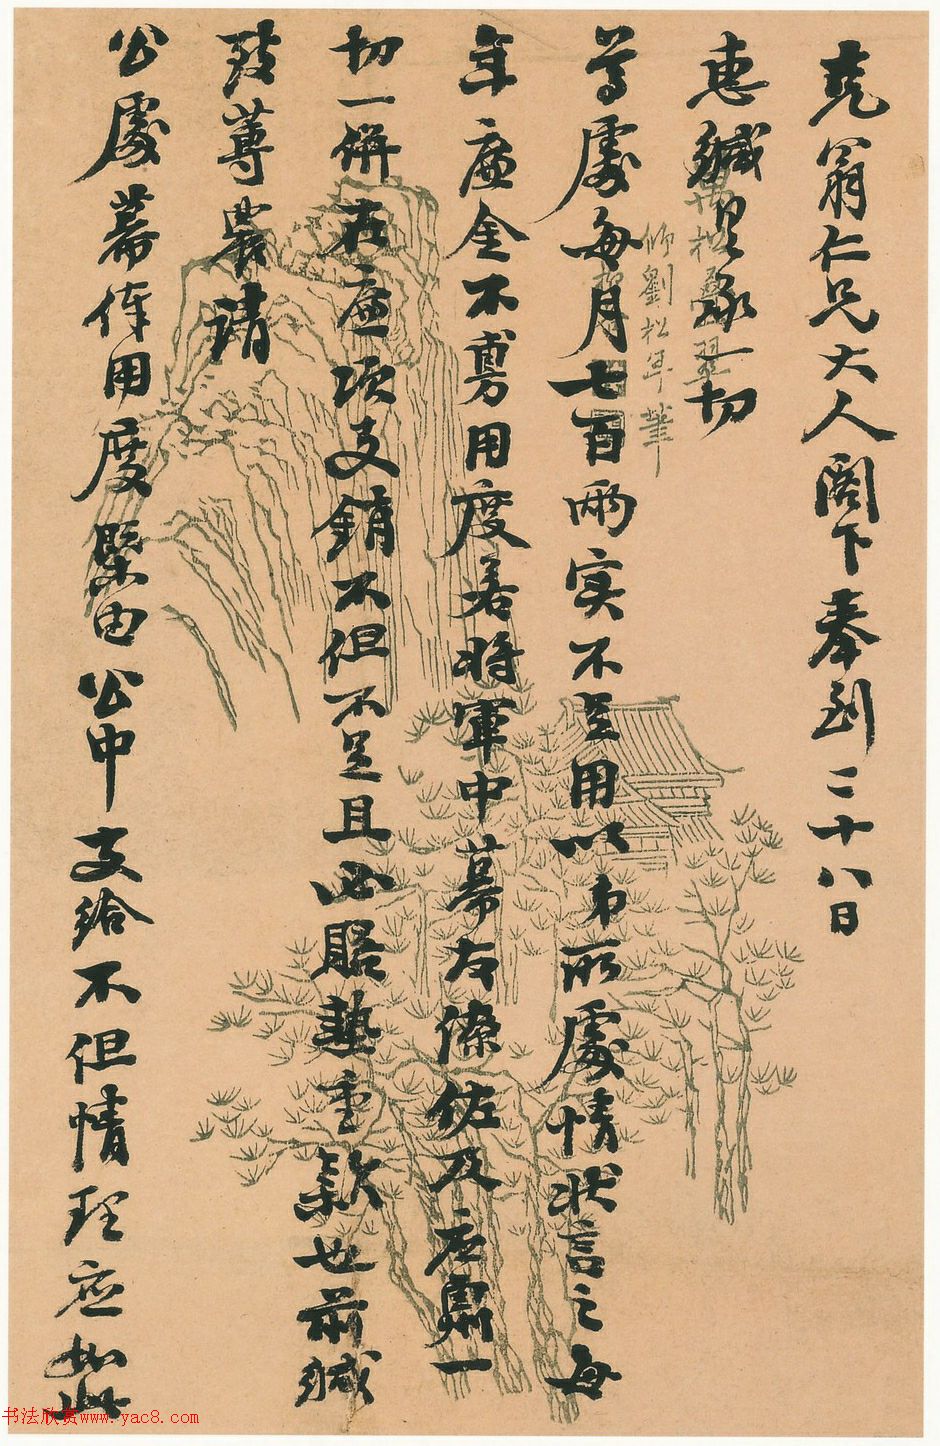 克翁仁兄大人閣下奉到二十八日
惠緘具承一切
尊處每月七百兩實不足用以弟所處情狀言之每
年廉金不敷用度若將軍中幕友僚佐及應一
切一併在廉項支銷不但不足且必賠墊重款也前緘
致蓴農請
公處幕俸用度槩由公中支給不但情理應如此
仿劉松年筆
书法欣赏www.yac8.com